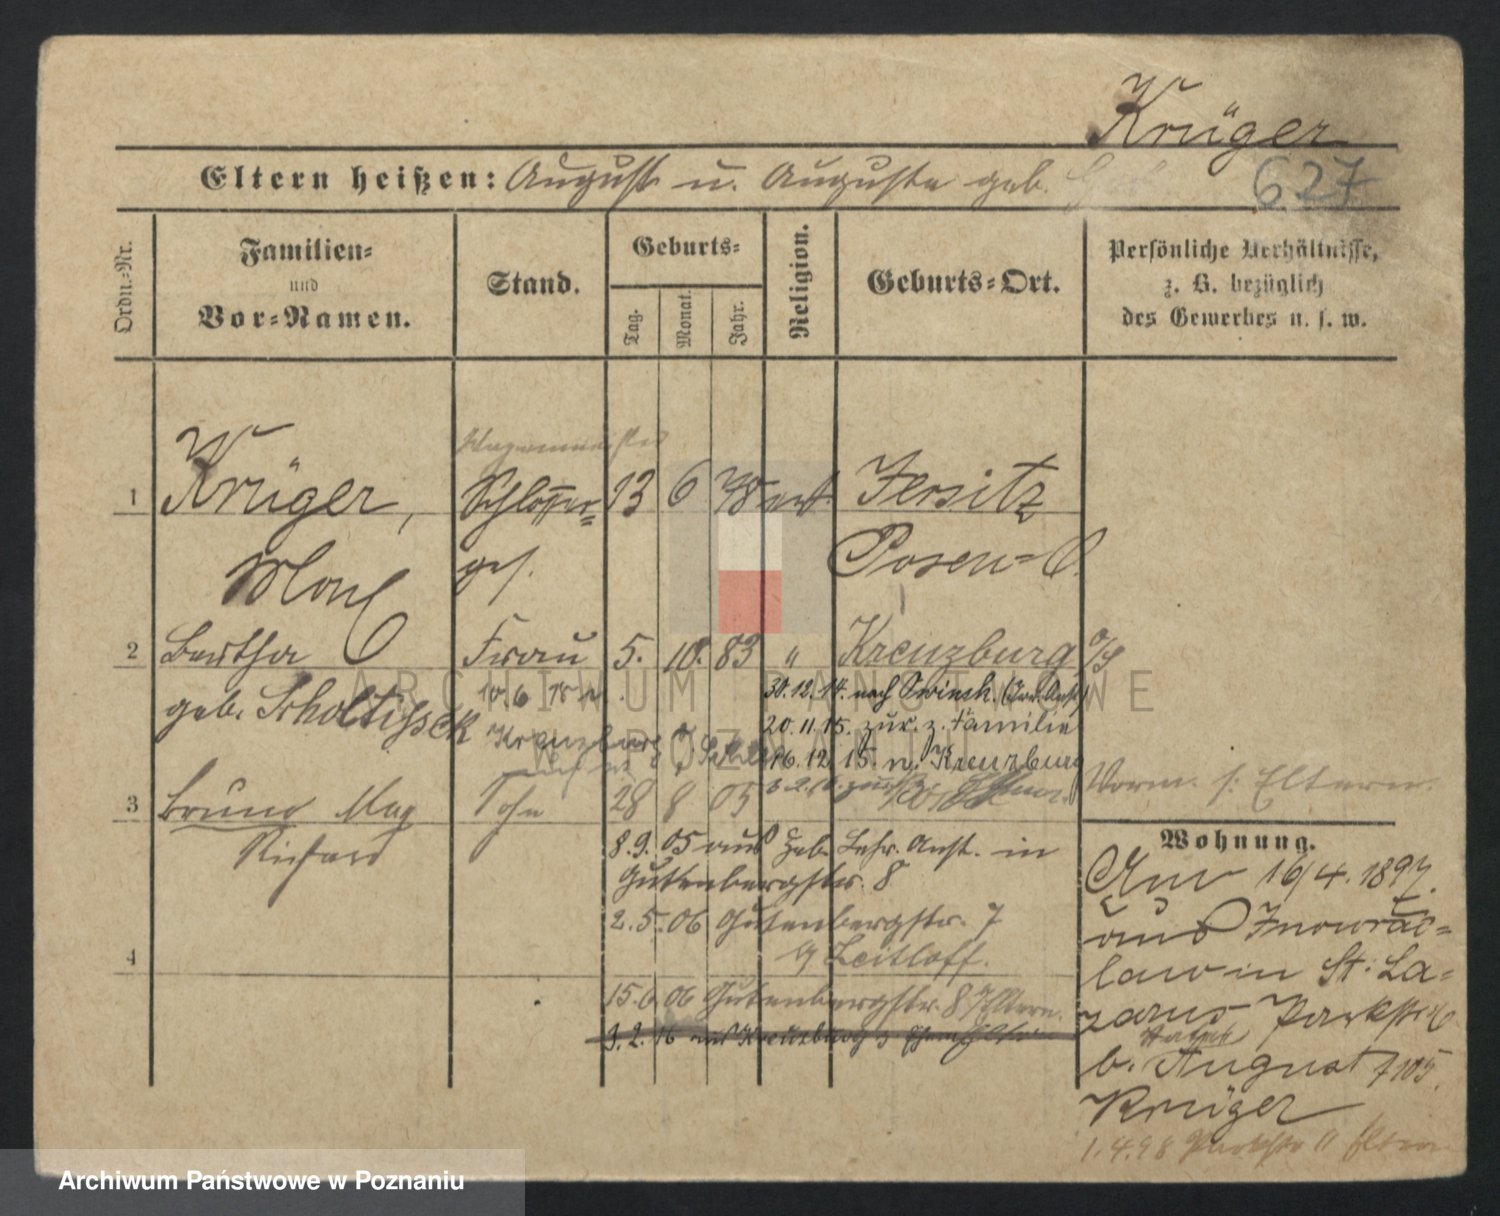 Krüger
Eltern heißen: August u. Auguste geb.
627
Ordn.=Nr.
Familien=
und
Vor=Namen.
Stand.
Geburts=
Tag.
Monat.
Jahr.
Religion.
Geburts=Ort.
Persönliche Verhältnisse,
z. B. bezüglich
des Gewerbes u. s. w.
1
Krüger,
Schlosser=
ges.
13 6 78
Jersitz
Posen=O.
2 Bertha Frau 5. 10. 83 " Kreuzburg O/S
geb. Scholtissek
10. 6.
Kreuzburg
30.12.14. nach Owinsk.
20.11.15. zur. z. Familie
16.12.15. n. Kreuzburg
3 Bruno Max Sohn 28 8 05
Richard
Vorm. s. Eltern.
8.9.05 aus Heb. Lehr. Anst. in
Gutenbergstr. 8
2.5.06 Gutenbergstr. 7
b/ Leitloff.
4
15.6.06 Gutenbergstr. 8 Eltern.
3.2.16 aus Kreuzburg z.
Wohnung.
16/4. 1897.
aus Inowraz=
law in St: La=
zarus Parkstr
b. August 7105.
Krüger
1.4.98 Parkstr 11 Eltern
ARCHIWUM PAŃSTWOWE
W POZNANIU
Archiwum Państwowe w Poznaniu